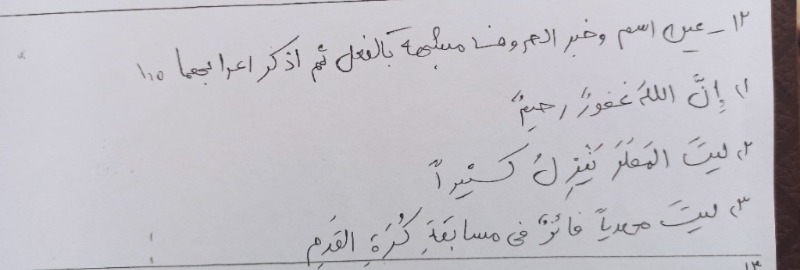 ١٢ـ عين اسم وخبر الحروف مشبهة بالفعل ثم اذكر اعرابهما ١،٥
١، إنَّ اللهَ غفورٌ رحيمٌ
٢، ليتَ المَطَرَ يَنْزِلُ كثيراً
٣، ليتَ مهدياً فائزٌ فی مسابقةِ كُرَةِ القَدَمِ
١٣